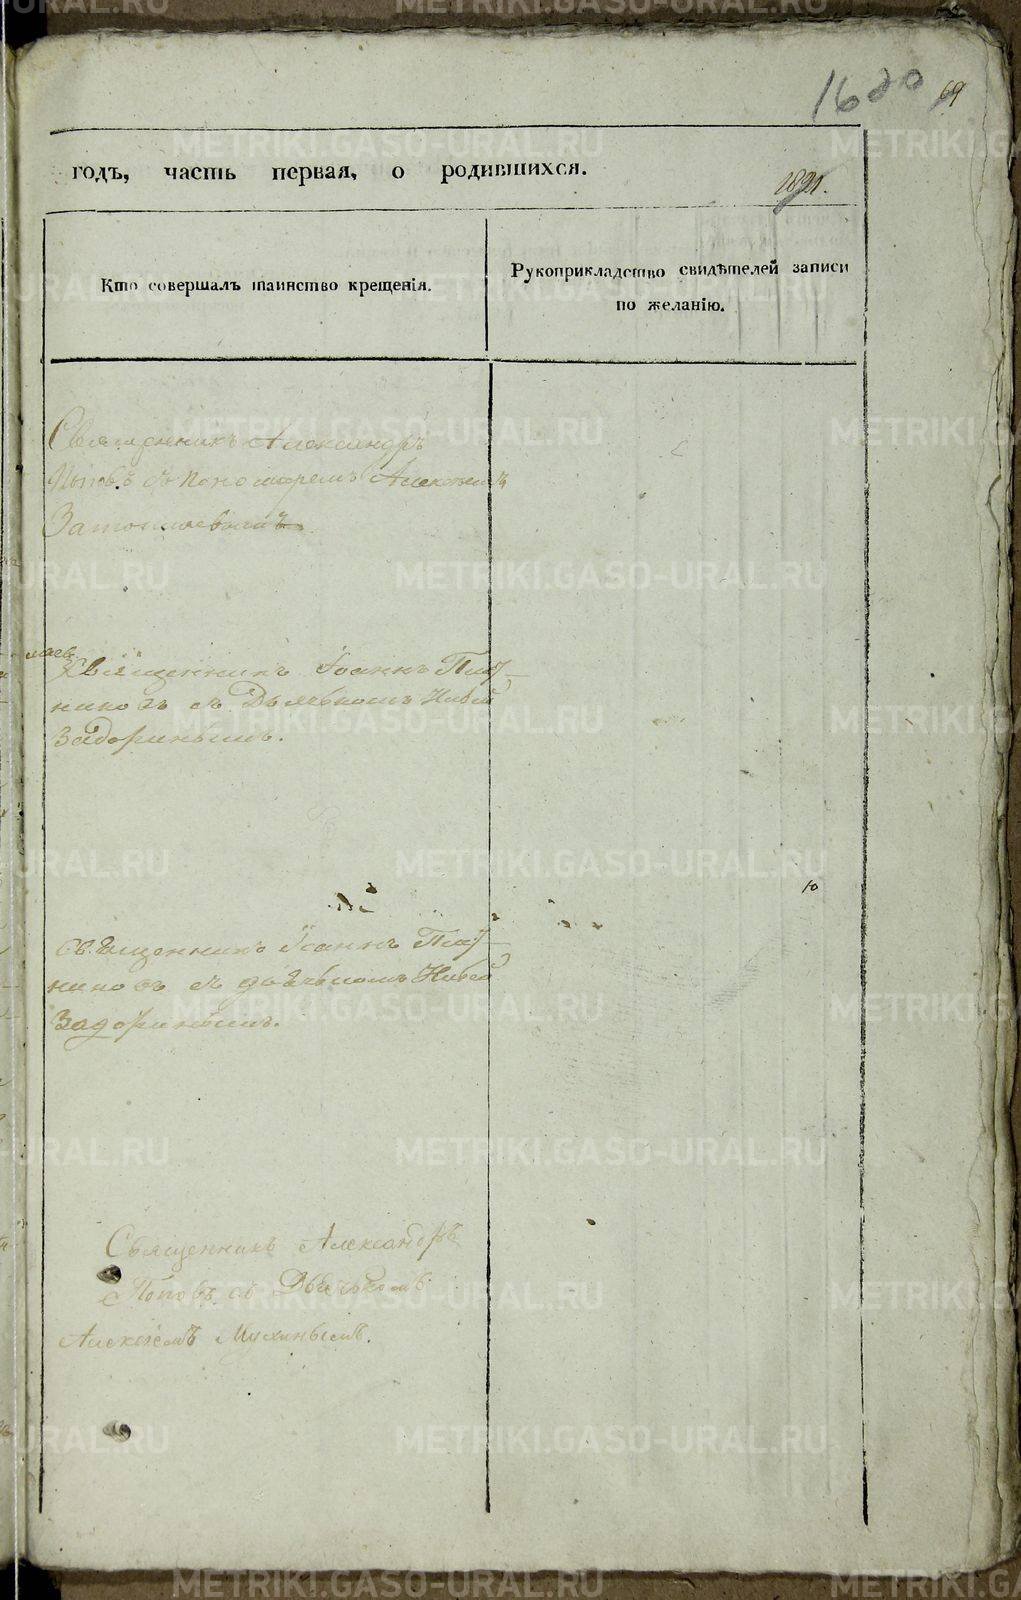 1680
69
годъ, часть первая, о родившихся.
1891.
Кто совершалъ таинство крещенія.
Рукоприкладство свидѣтелей записи
по желанію.
Священникъ Александръ
Поповъ съ пономаремъ Алексѣемъ
Священникъ Іоаннъ Плу-
никовъ съ Дьячкомъ
Задоринымъ.
Священникъ Іоаннъ Плу-
никовъ съ дьячкомъ
Задоринымъ.
Священникъ Александръ
Поповъ съ Дьячкомъ
Алексѣемъ Мухинымъ.
METRIKI.GASO-URAL.RU